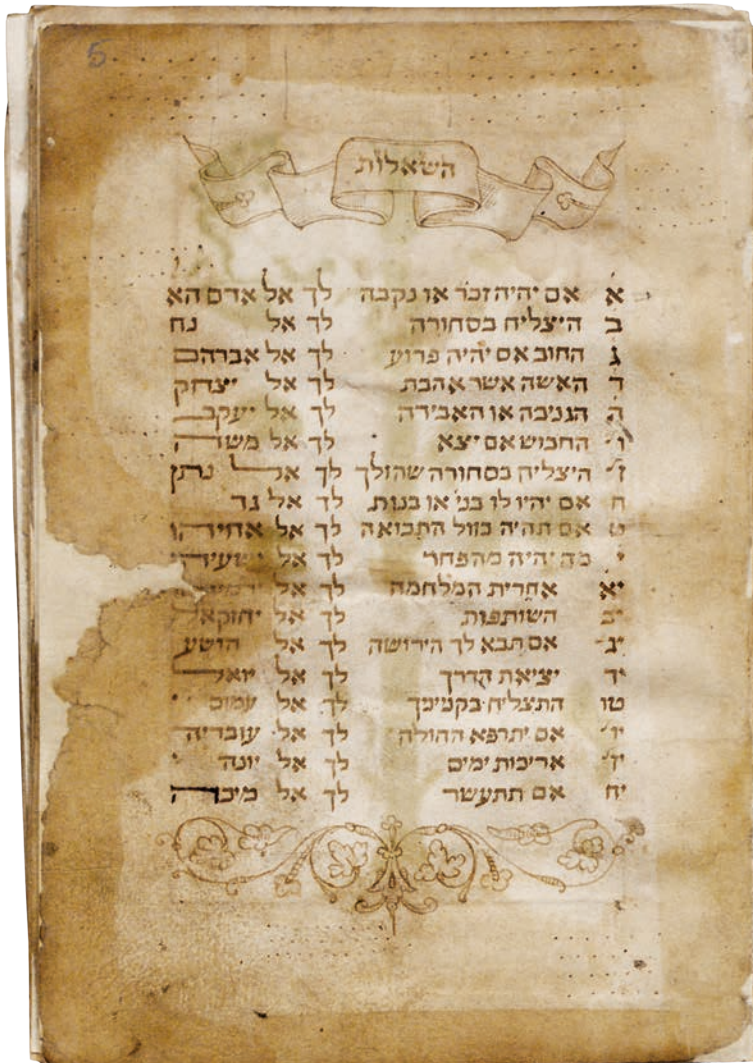 5
השאלות
א אם יהיה זכר או נקבה לך אל אדם הא
ב היצליח בסחורה לך אל נח
ג החוב אם יהיה פרוע לך אל אברהם
ד האשה אשר אהבת לך אל יצחק
ה הגניבה או האבידה לך אל יעקב
ו החבוש אם יצא לך אל משה
ז היצליח בסחורה שהולך לך אל נתן
ח אם יהיו לו בני׳ או בנות לך אל גד
ט אם תהיה בזול התבואה לך אל אחיהו
י מה יהיה מהפחד לך אל
יא אחרית המלחמה לך אל
יב השותפות לך אל יחזקאל
יג אם תבא לך הירושה לך אל הושע
יד יציאת הדרך לך אל יואל
טו התצליח בקנינך לך אל עמוס
יו אם יתרפא החולה לך אל עובדיה
יז אריכות ימים לך אל יונה
יח אם תתעשר לך אל מיכה